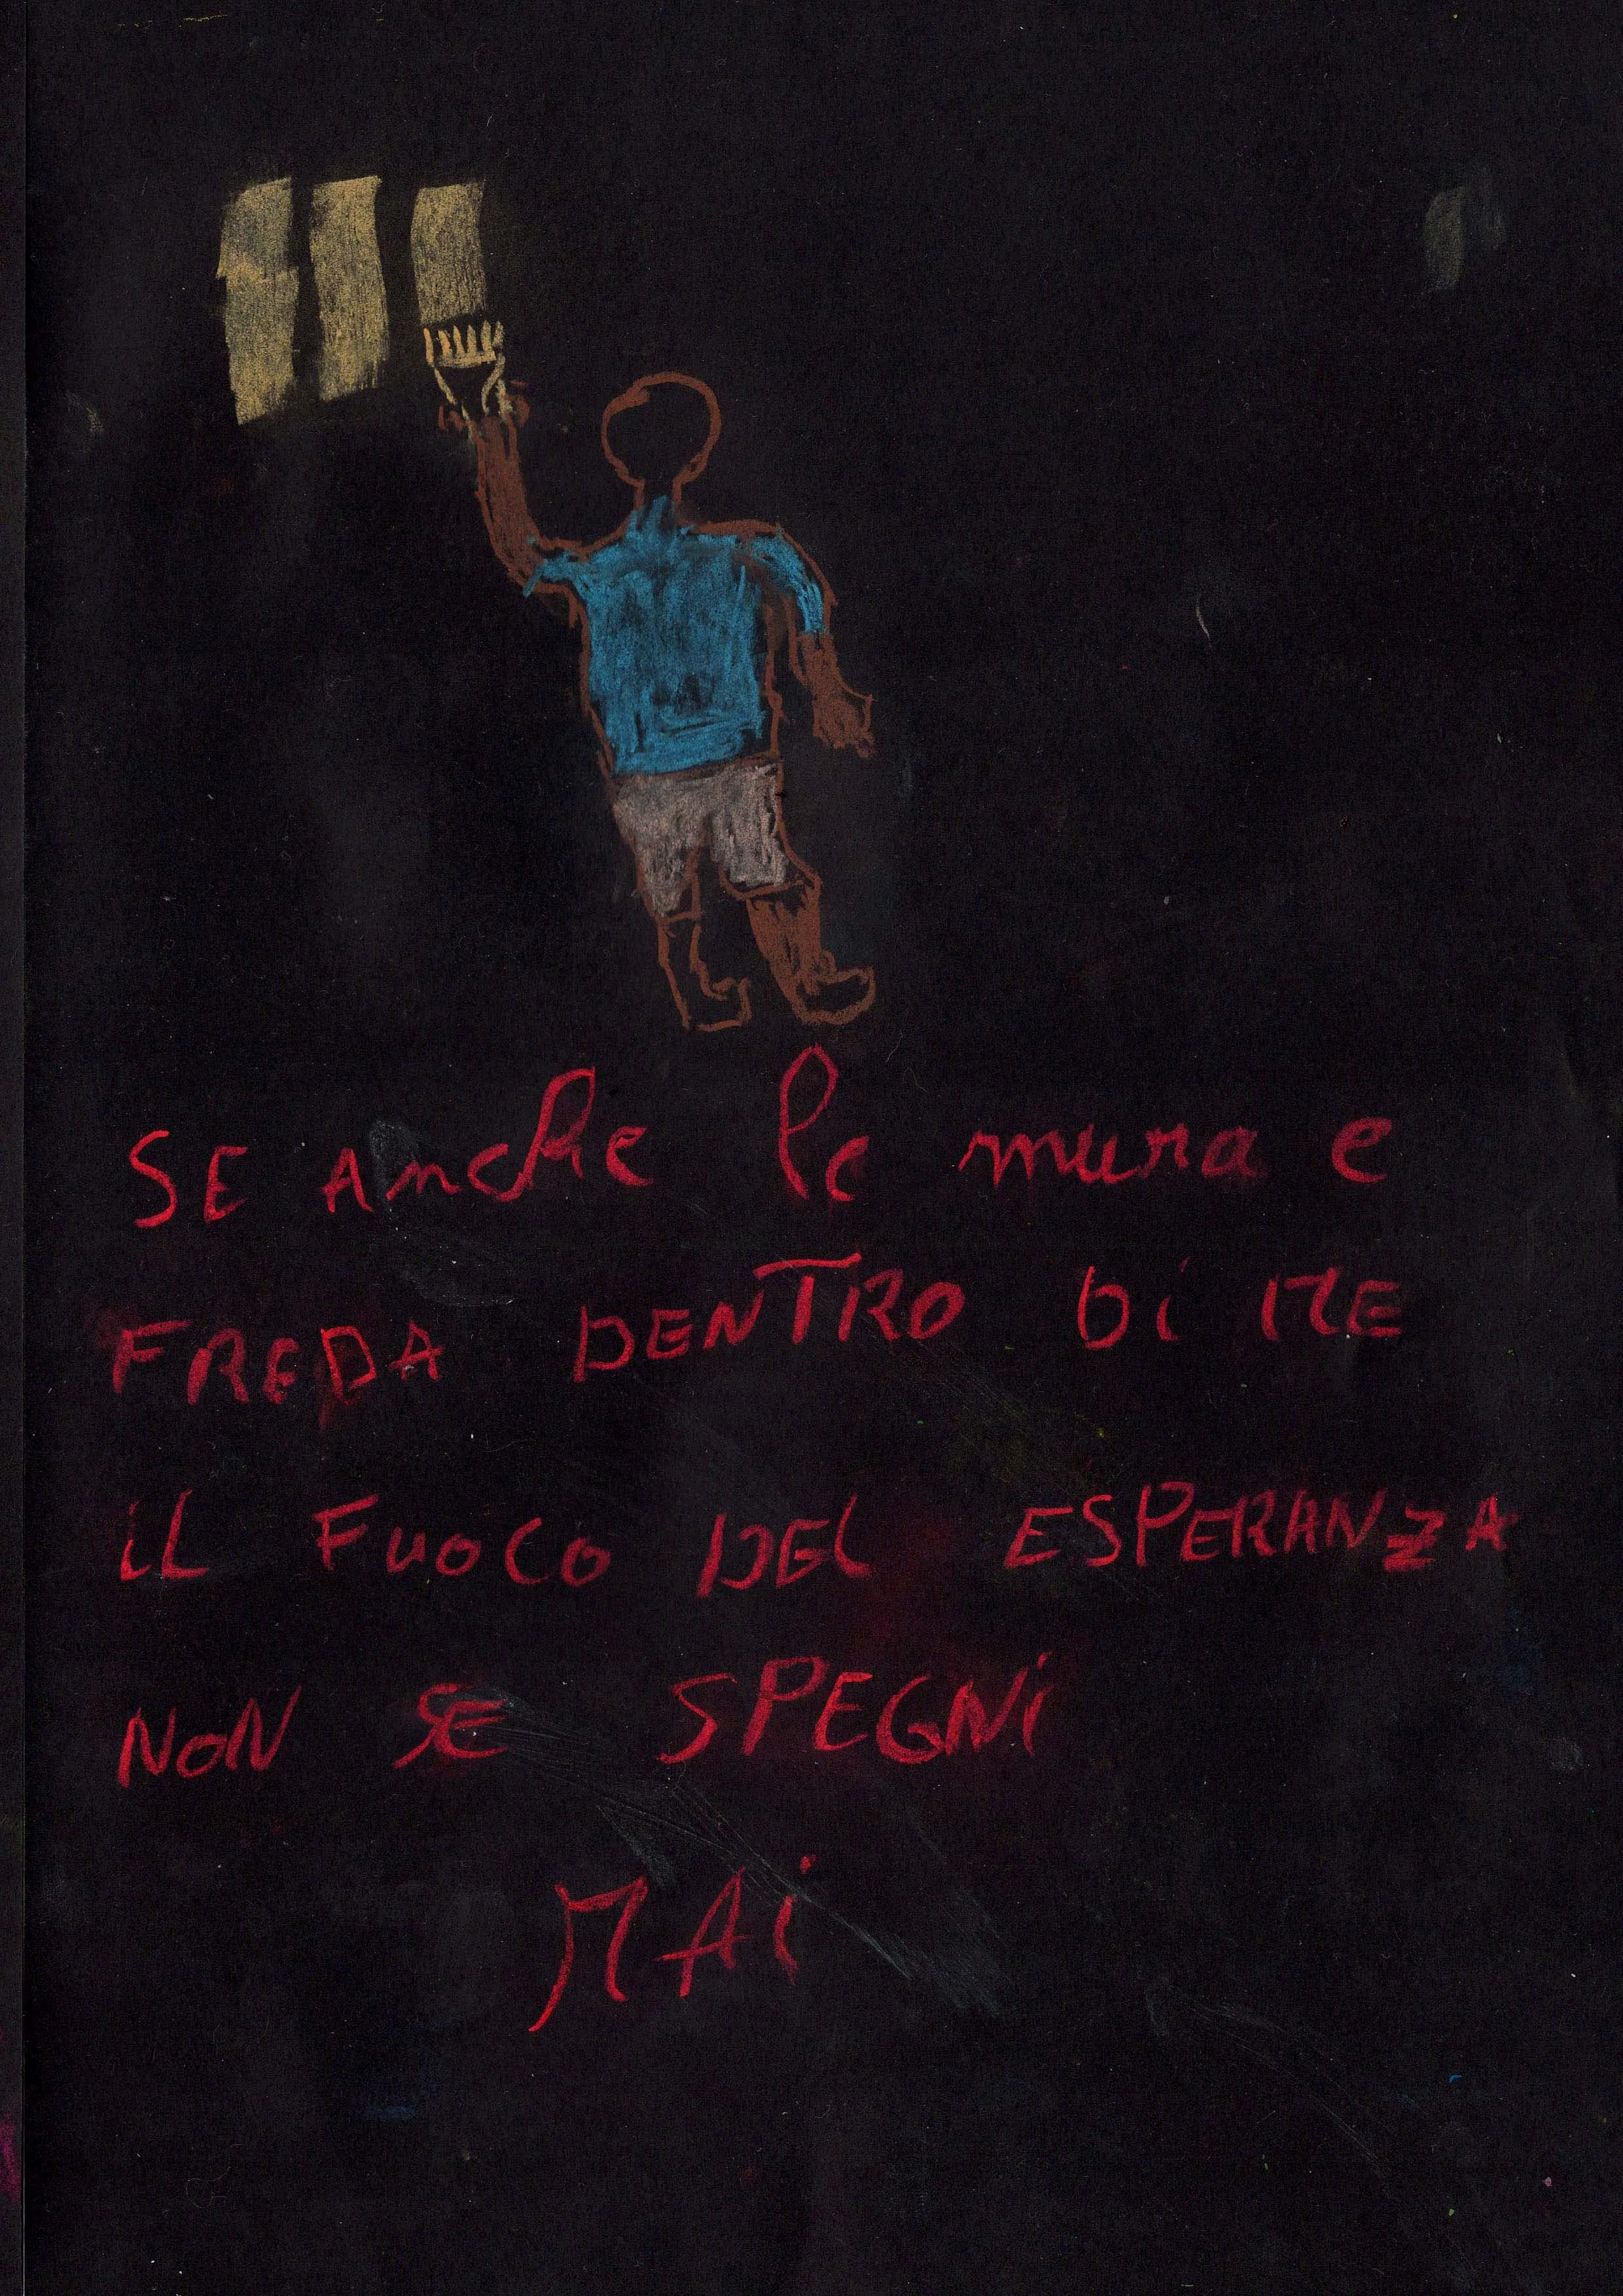 SE Anche le mura e
FREDA DENTRO Di ME
iL FuoCo DEL ESPERANZA
NoN SE SPEGNi
MAi